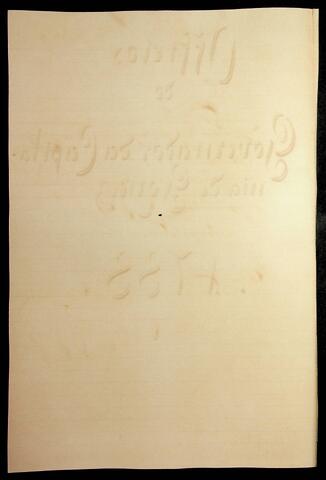 Officios
do
Governador da Capita-
nia de
1788.